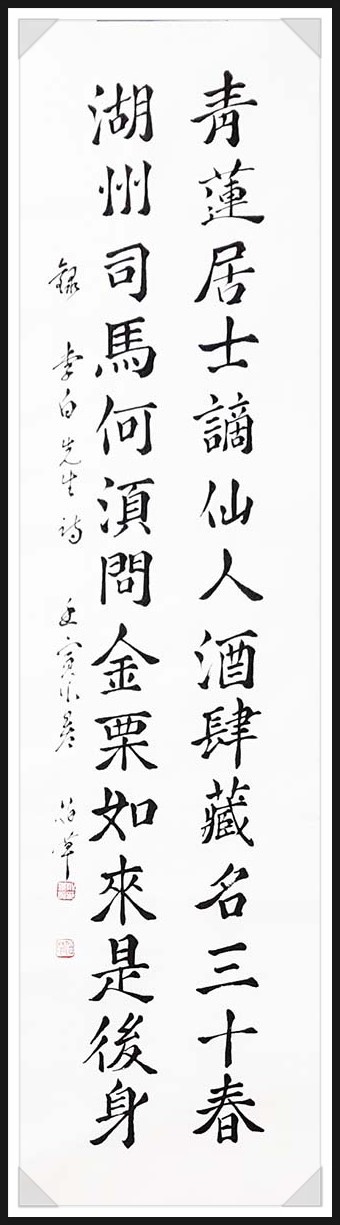 青蓮居士謫仙人酒肆藏名三十春
湖州司馬何湏問金粟如來是後身
錄 李白先生詩 壬寅